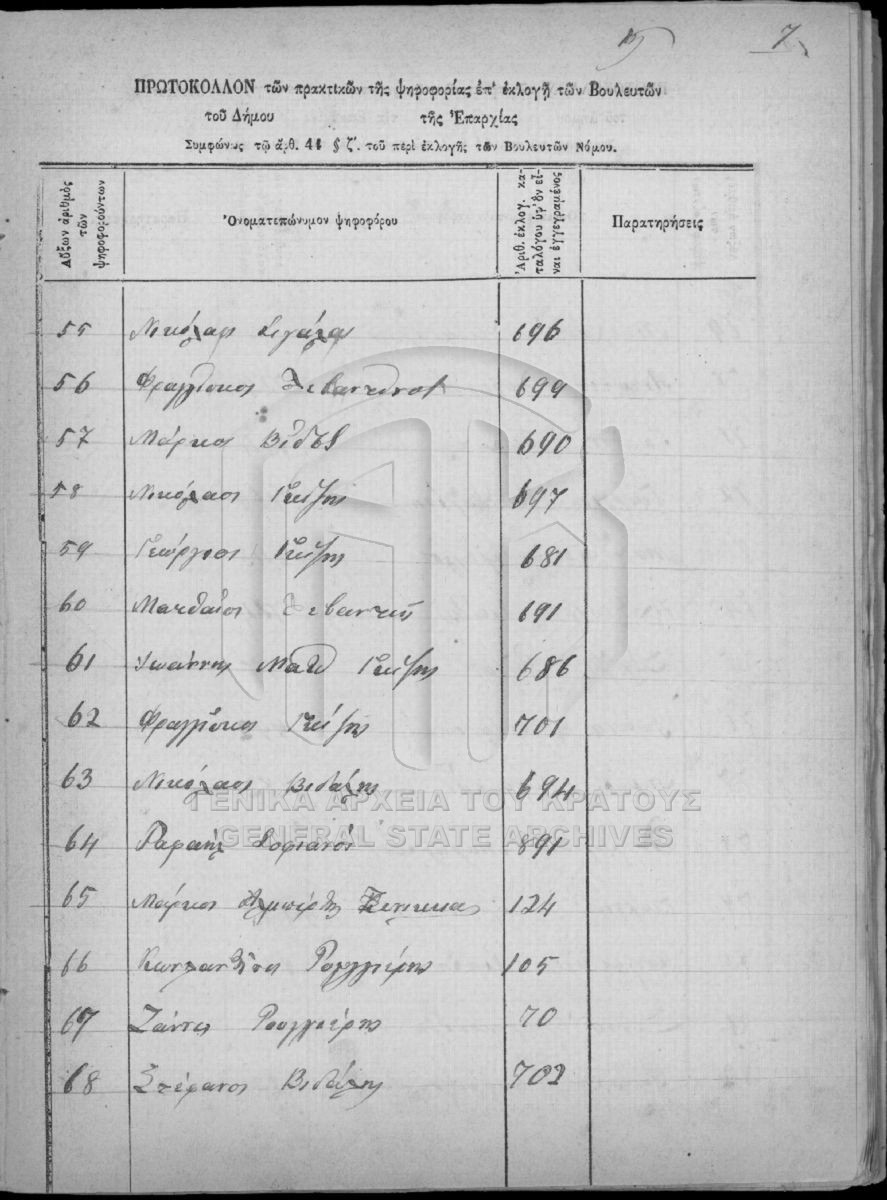 7
ΠΡΩΤΟΚΟΛΛΟΝ τῶν πρακτικῶν τῆς ψηφοφορίας ἐπ' ἐκλογῇ τῶν Βουλευτῶν
τοῦ Δήμου τῆς Ἐπαρχίας
Συμφώνως τῷ ἄρθ. 44 § ζ'. τοῦ περὶ ἐκλογῆς τῶν Βουλευτῶν Νόμου.
Αὔξων ἀριθμὸς τῶν ψηφοφορούντων
Ὀνοματεπώνυμον ψηφοφόρου
Ἀριθ. ἐκλογ. καταλόγου ὑφ' ὃν εἶναι ἐγγεγραμμένος
Παρατηρήσεις
55 Νικόλαος Σιγάλας 696
56 Φραγγίσκος 699
57 Μάρκος Βίδος 690
58 Νικόλαος Γκίζης 697
59 Γεώργιος Γκίζης 681
60 Ματθαῖος 691
61 Ἰωάννης Ματθ Γκίζης 686
62 Φραγγίσκος Γκίζης 701
63 Νικόλαος Βιδάλης 694
64 Ραφαήλ Σοφιανός 891
65 Μάρκος 124
66 Κωνσταντῖνος 105
67 70
68 Στέφανος Βιδάλης 702
ΓΕΝΙΚΑ ΑΡΧΕΙΑ ΤΟΥ ΚΡΑΤΟΥΣ
GENERAL STATE ARCHIVES